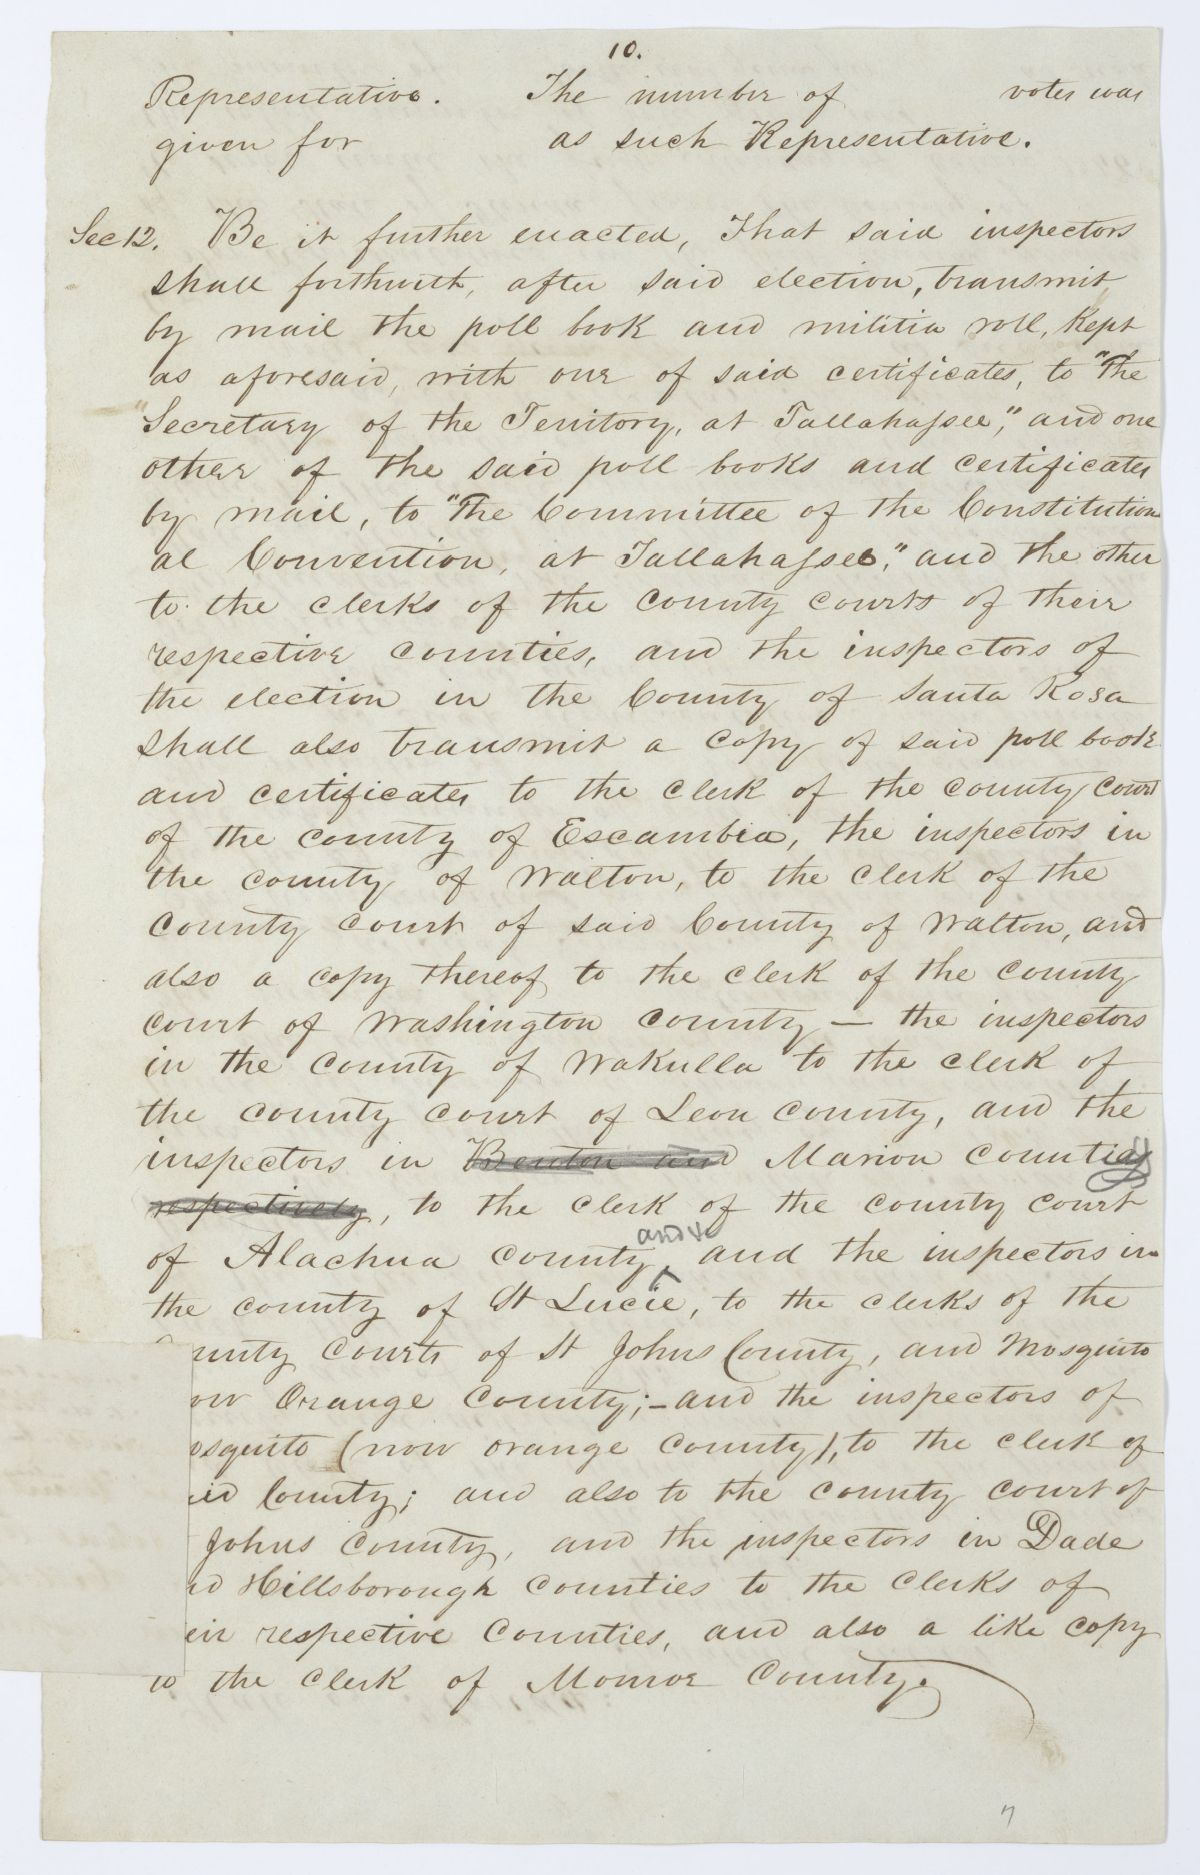 10.
Representative. The number of votes was
given for as such Representative.
Sec 12. Be it further enacted, That said inspectors
shall forthwith, after said election, transmit
by mail the poll book and militia roll, kept
as aforesaid, with one of said certificates, to "The
Secretary of the Territory, at Tallahassee," and one
other of the said poll books and certificates
by mail, to "The Committee of the Constitution
al Convention, at Tallahassee," and the other
to the clerks of the county courts of their
respective counties, and the inspectors of
the election in the County of Santa Rosa
shall also transmit a copy of said poll book
and certificates to the clerk of the county court
of the county of Escambia, the inspectors in
the county of Walton, to the clerk of the
county court of said County of Walton, and
also a copy thereof to the clerk of the county
court of Washington county — the inspectors
in the county of Wakulla to the clerk of
the county court of Leon county, and the
inspectors in Benton and Marion counties
respectively, to the clerk of the county court
of Alachua county, and the inspectors in
the county of St Lucie, to the clerks of the
unty Courts of St Johns County, and Mosquito
ow Orange County; — and the inspectors of
osquito (now orange county), to the clerk of
id County; and also to the county court of
Johns County, and the inspectors in Dade
d Hillsborough Counties to the Clerks of
eir respective Counties, and also a like copy
to the Clerk of Monroe County.
7